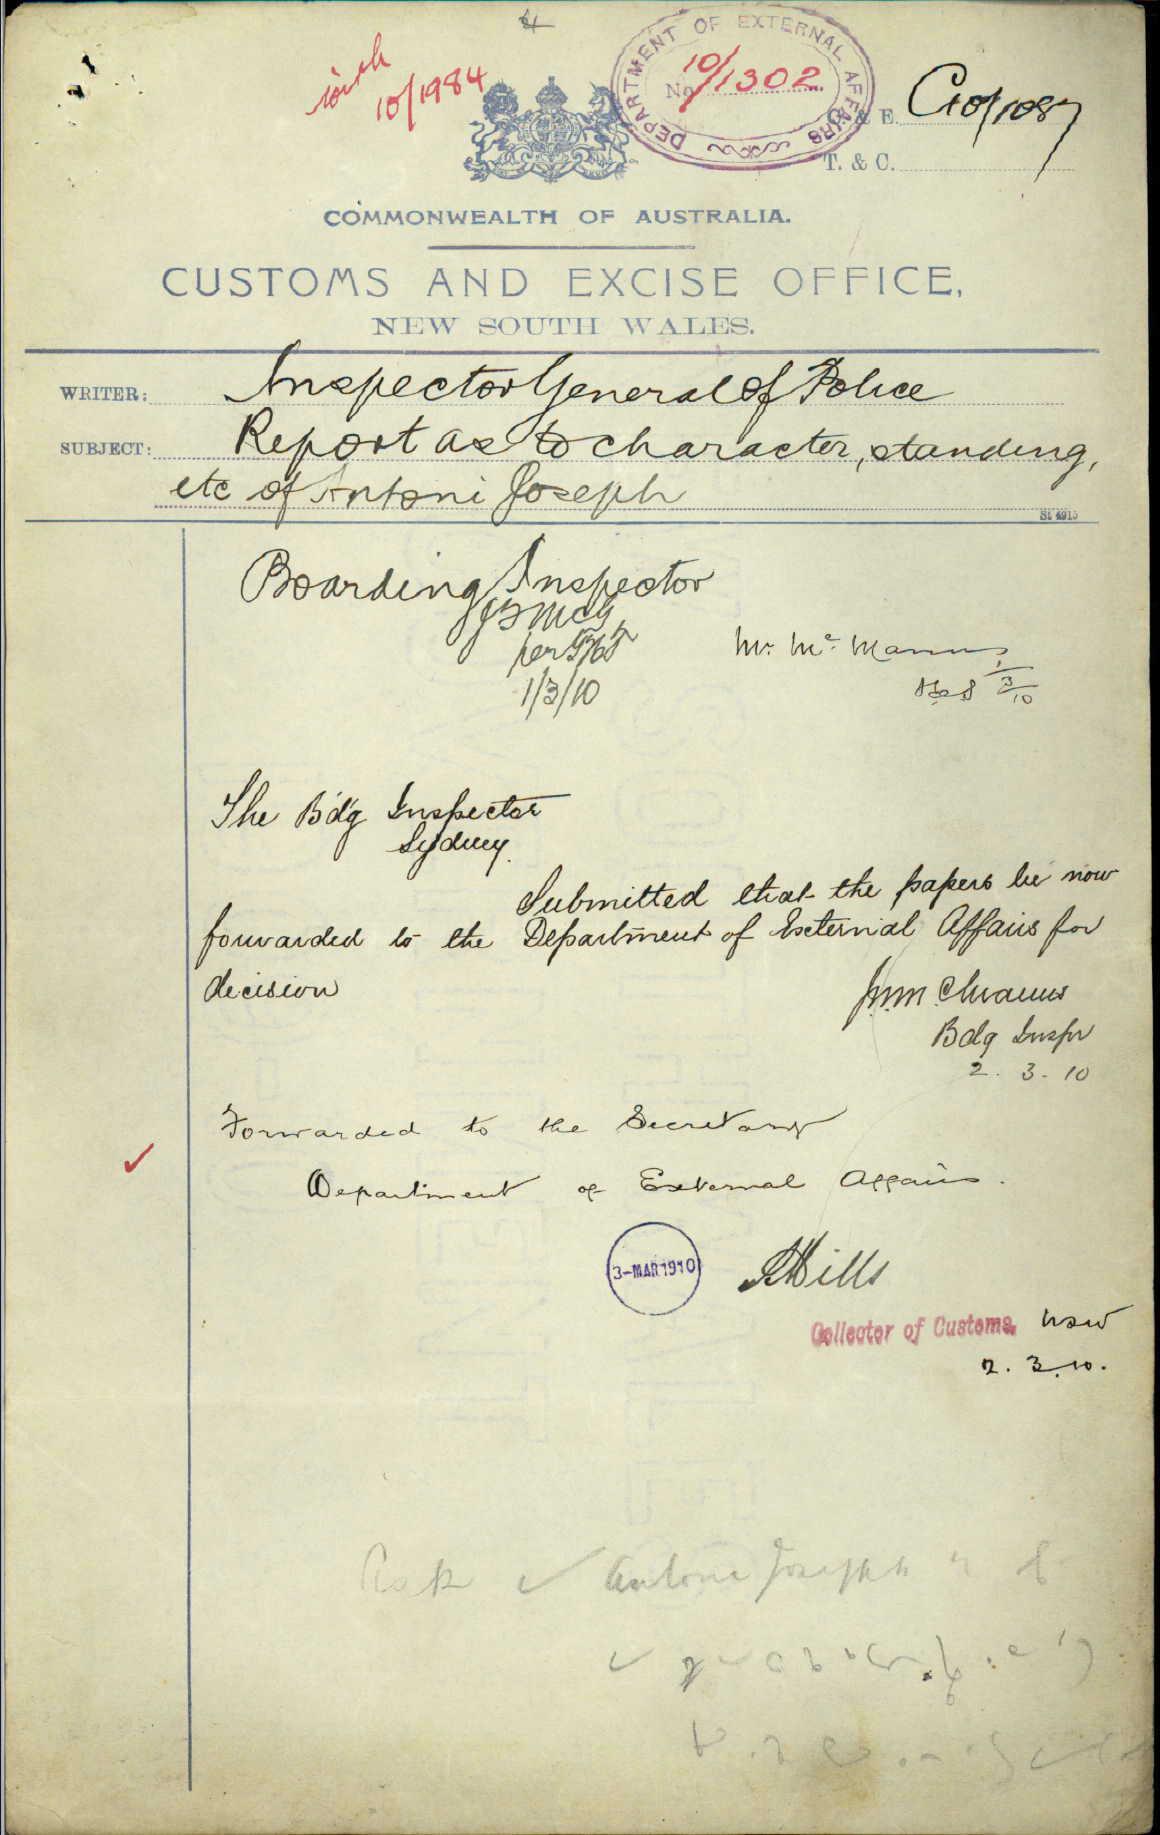 4
with
10/1984
DEPARTMENT OF EXTERNAL AFFAIRS
No. 10/1302
C & E. C10/1087
T. & C.
COMMONWEALTH OF AUSTRALIA.
CUSTOMS AND EXCISE OFFICE,
NEW SOUTH WALES.
WRITER: Inspector General of Police
SUBJECT: Report as to character, standing,
etc of Antoni Joseph
St 4915
Boarding Inspector
per
1/3/10
Mr. Mc. Manus
1/3/10
The Bd'g Inspector
Sydney.
Submitted that the papers be now
forwarded to the Department of External Affairs for
decision
Bdg Inspr
2. 3. 10
Forwarded to the Secretary
Department of External Affairs.
3-MAR 1910
Mills
Collector of Customs, NSW
2. 3. 10.
Ask Antoni Joseph